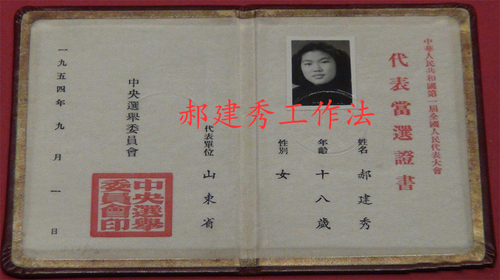 中華人民共和國第一屆全國人民代表大會
代表當選證書
姓名 郝建秀
年齡 十八歲
性別 女
代表單位 山東省
中央選舉委員會
一九五四年九月一日
中央選舉
委員會印
郝建秀工作法